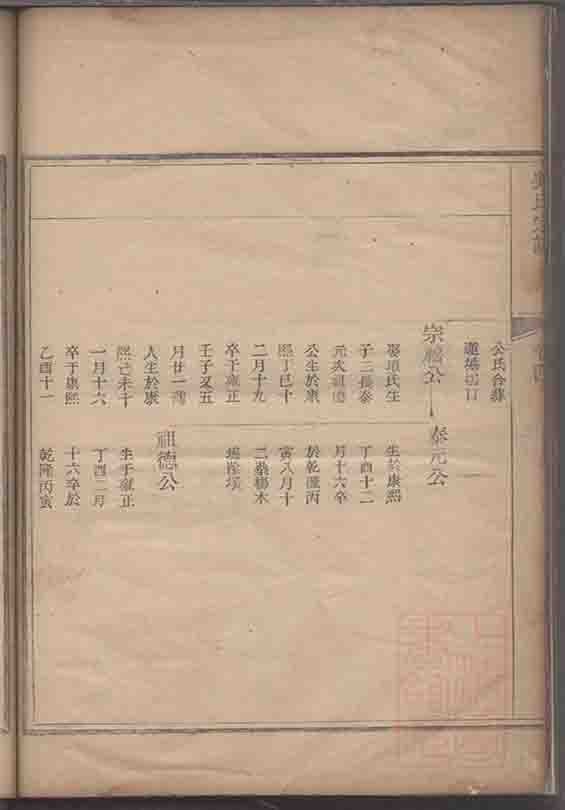 氏宗譜
公氏合葬
宗福公
泰元公
娶項氏生
子二長泰
元次祖德
公生於康
熙丁巳十
二月十九
卒于雍正
壬子又五
月廿一
人生於康
熙己未十
一月十六
卒于康熙
乙酉十一
生於康熙
丁酉十二
月十六卒
於乾隆丙
寅八月十
二葬楊木
祖德公
生于雍正
丁酉二月
十六卒於
乾隆丙寅